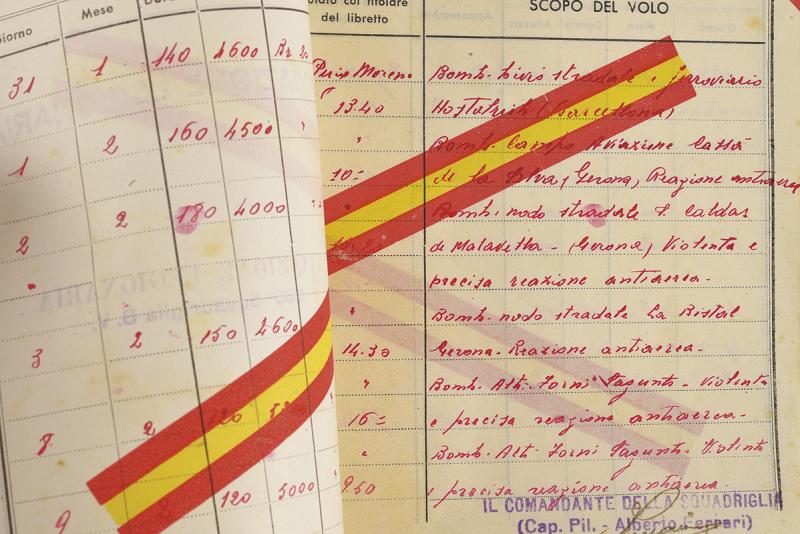 Giorno Mese
31 1 140 4600 Br. 20
1 2 160 4500 "
2 2 180 4000
3 2 150 4600
8 2 120
9 2 120 5000
col titolare
del libretto
SCOPO DEL VOLO
Perip Moreno Bomb. bivio stradale e ferroviario
13.40 Hostalrich (Barcellona)
" Bomb. Campo Aviazione Cassà
10= de la Selva (Gerona) Reazione antiaerea
Bomb. nodo stradale S. Caldas
de Malavella - (Gerona) Violenta e
precisa reazione antiaerea.
" Bomb. nodo stradale La Bistal
14.30 Gerona. Reazione antiaerea.
" Bomb. Alti Forni Sagunto - Violenta
16= e precisa reazione antiaerea.
" Bomb. Alti Forni Sagunto. Violenta
9.50 e precisa reazione antiaerea
IL COMANDANTE DELLA SQUADRIGLIA
(Cap. Pil. - Alberto Ferrari)